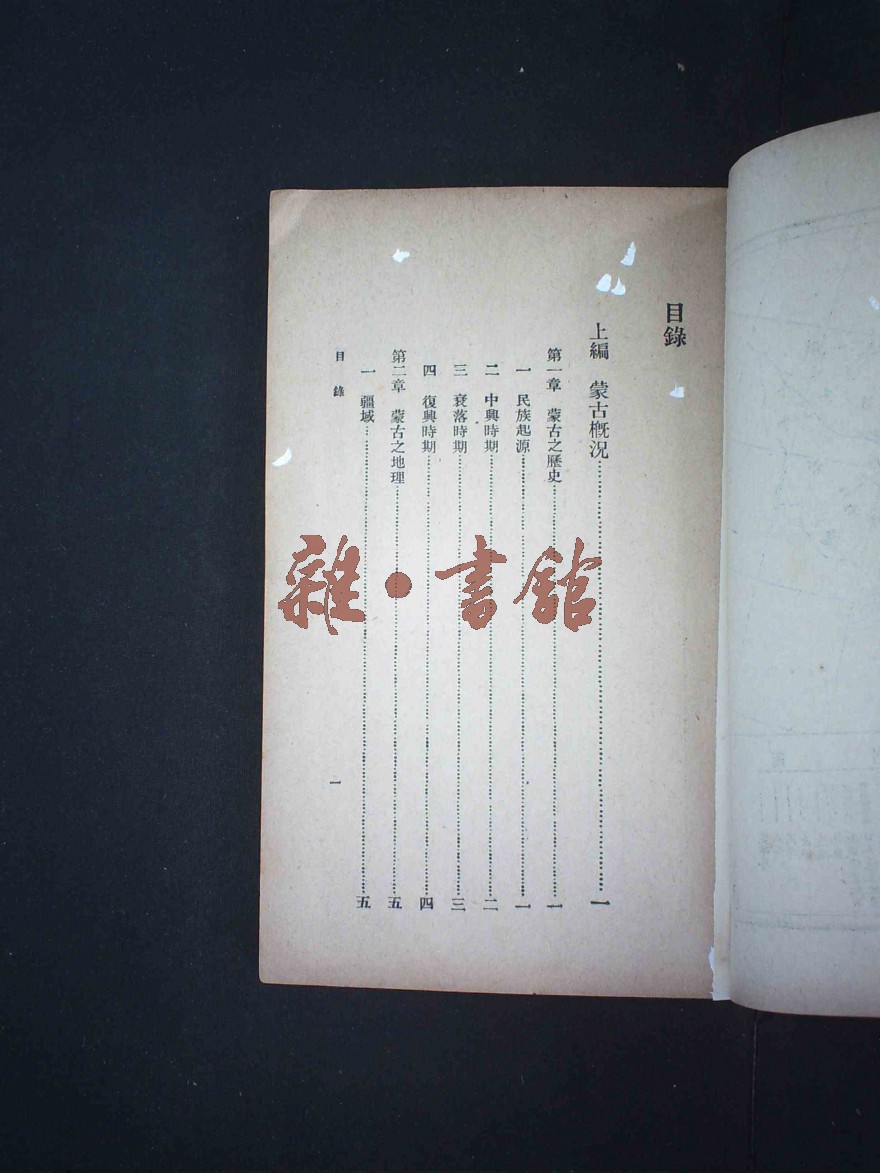 目錄
上編　蒙古概況…………一
第一章　蒙古之歷史…………一
一　民族起源…………一
二　中興時期…………二
三　衰落時期…………三
四　復興時期…………四
第二章　蒙古之地理…………五
一　疆域…………五
目錄
一
雜•書館